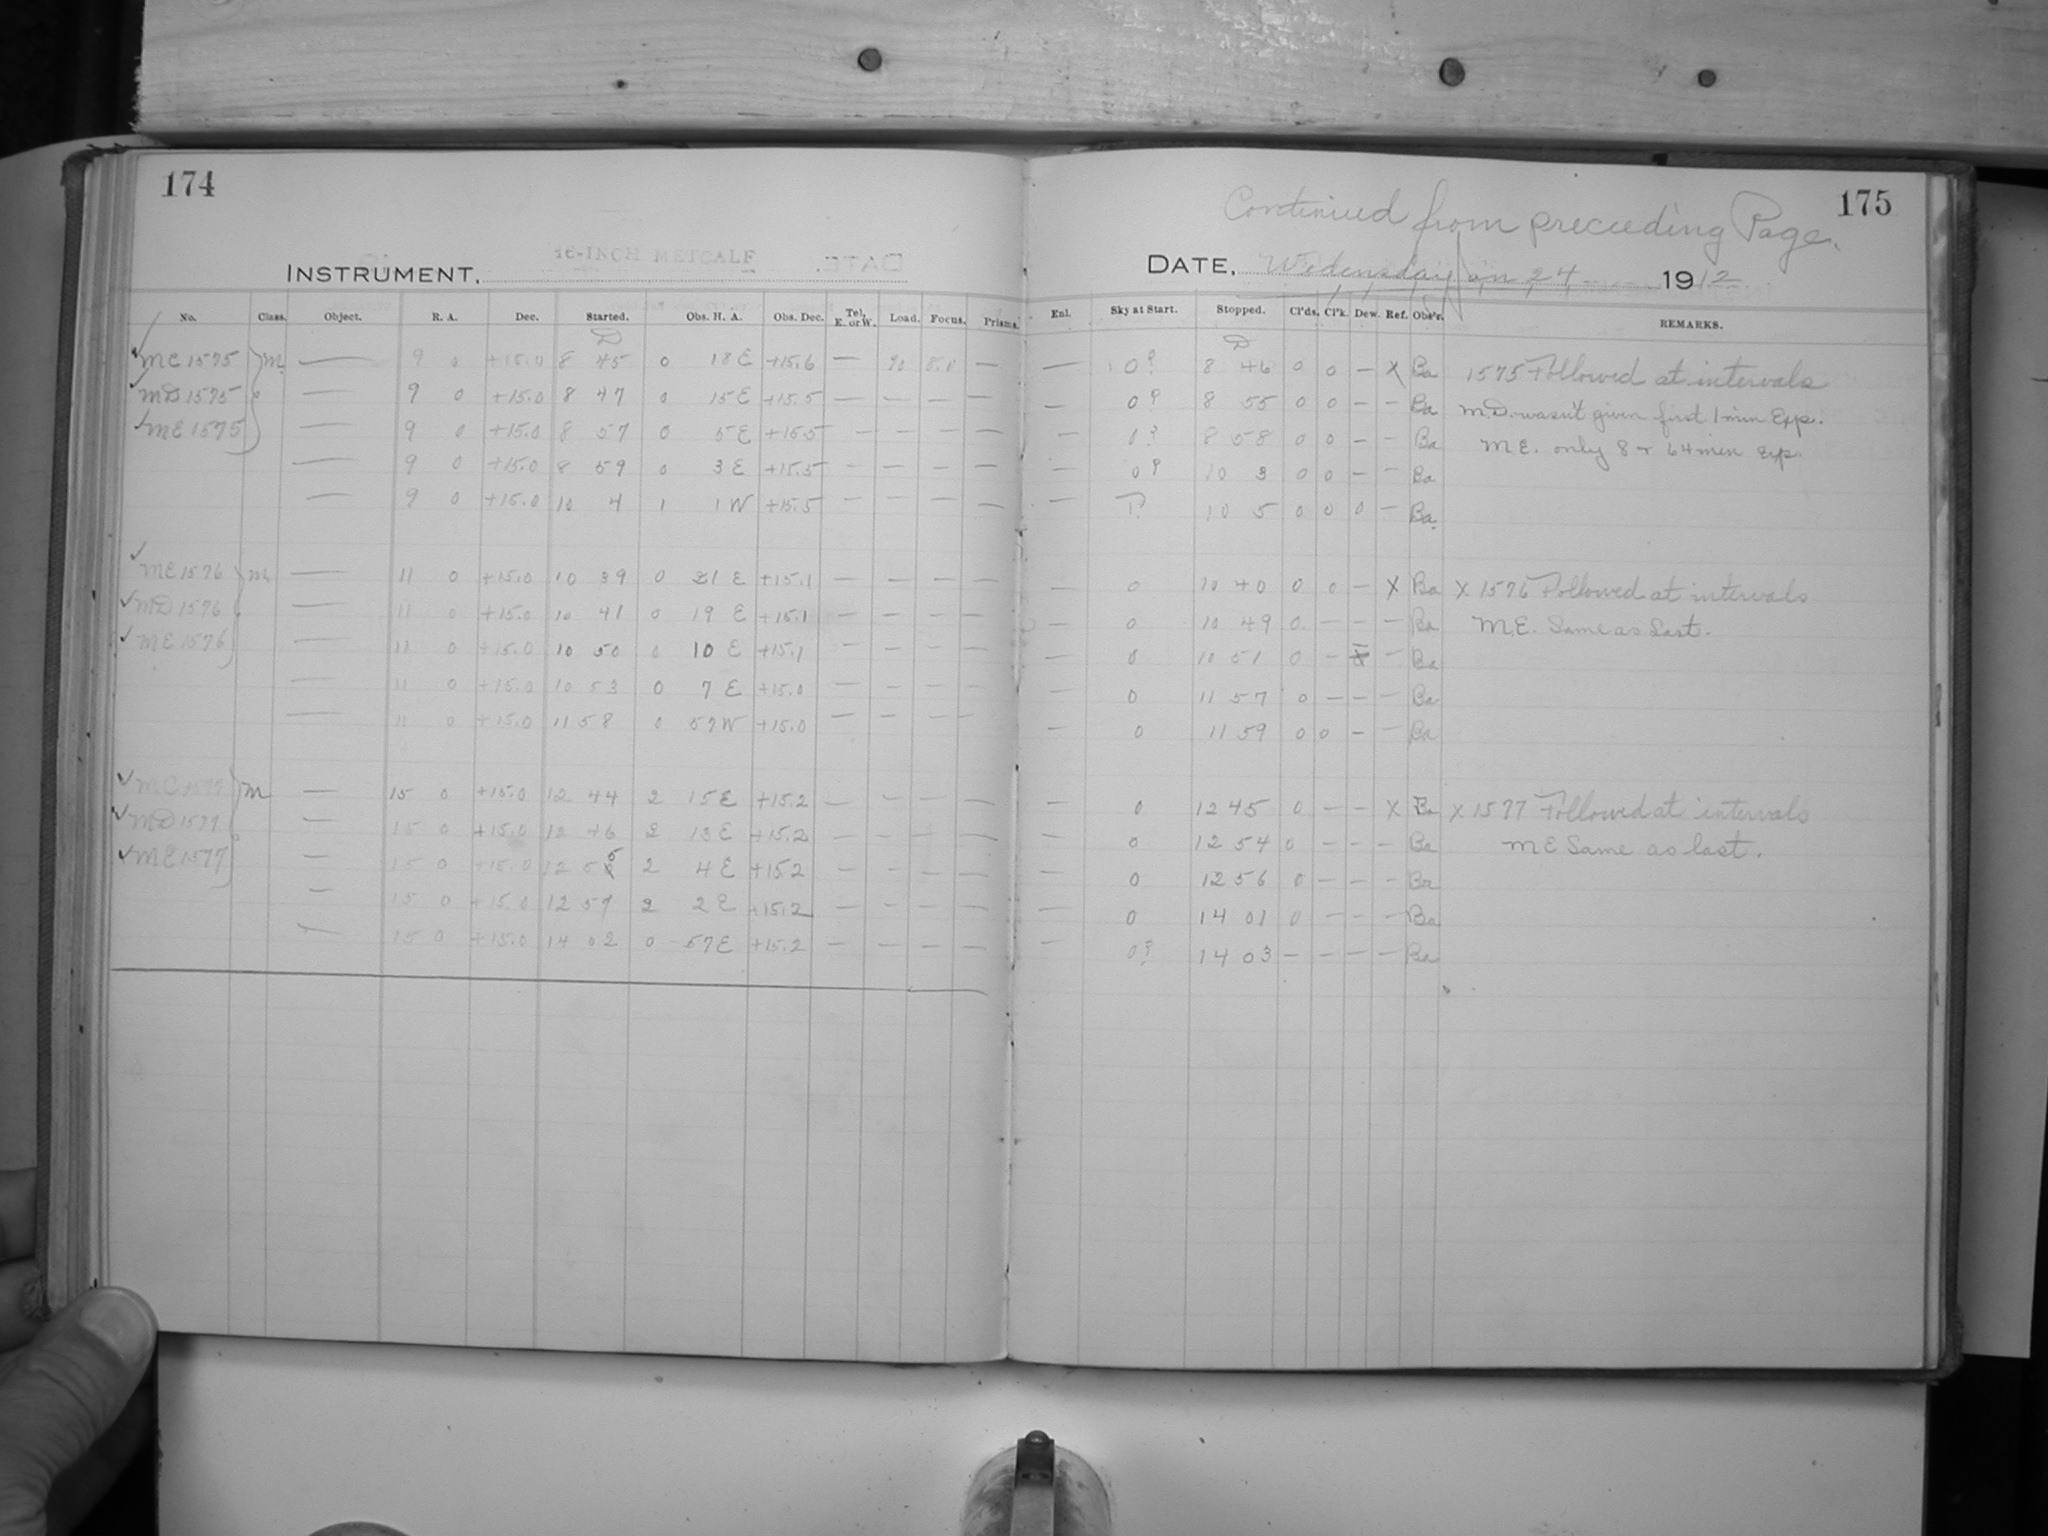 174
175
Continued from preceeding Page.
INSTRUMENT, 16-INCH METCALF
DATE, Wedensday Jan 24 1912
No. Class. Object. R. A. Dec. Started. Obs. H. A. Obs. Dec. Tel, E. or W. Load. Focus. Prisms. Enl. Sky at Start. Stopped. Cl'ds. Cl'k. Dew. Ref. Obs'r. REMARKS.
D D
MC 1575 M — 9 0 +15.0 8 45 0 18 E +15.6 — 90 8.0 — — 0? 8 46 0 0 — X Ba 1575 Followed at intervals
MD 1575 — 9 0 +15.0 8 47 0 15 E +15.5 — — — — — 0? 8 55 0 0 — — Ba M.D. wasn't given first 1 min Exp.
ME 1575 — 9 0 +15.0 8 57 0 5 E +15.5 — — — — — 0? 8 58 0 0 — — Ba M.E. only 8 & 64 min Exp.
— 9 0 +15.0 8 59 0 3 E +15.5 — — — — — 0? 10 3 0 0 — — Ba
— 9 0 +15.0 10 4 1 1 W +15.5 — — — — — ? 10 5 0 0 0 — Ba.
MC 1576 M — 11 0 +15.0 10 39 0 21 E +15.1 — — — — — 0 10 40 0 0 — X Ba X 1576 Followed at intervals
MD 1576 — 11 0 +15.0 10 41 0 19 E +15.1 — — — — — 0 10 49 0 — — — Ba M.E. Same as Last.
ME 1576 — 11 0 +15.0 10 50 0 10 E +15.1 — — — — — 0 10 51 0 — — Ba
— 11 0 +15.0 10 53 0 7 E +15.0 — — — — — 0 11 57 0 — — — Ba
— 11 0 +15.0 11 58 0 57 W +15.0 — — — — — 0 11 59 0 0 — — Ba
MC 1577 M — 15 0 +15.0 12 44 2 15 E +15.2 — — — — — 0 12 45 0 — — X Ba X 1577 Followed at intervals
MD 1577 — 15 0 +15.0 12 46 2 13 E +15.2 — — — — — 0 12 54 0 — — — Ba ME Same as last.
ME 1577 — 15 0 +15.0 12 55 2 4 E +15.2 — — — — — 0 12 56 0 — — — Ba
— 15 0 +15.0 12 57 2 2 E +15.2 — — — — — 0 14 01 0 — — — Ba
— 15 0 +15.0 14 02 0 57 E +15.2 — — — — — 0? 14 03 — — — — Ba